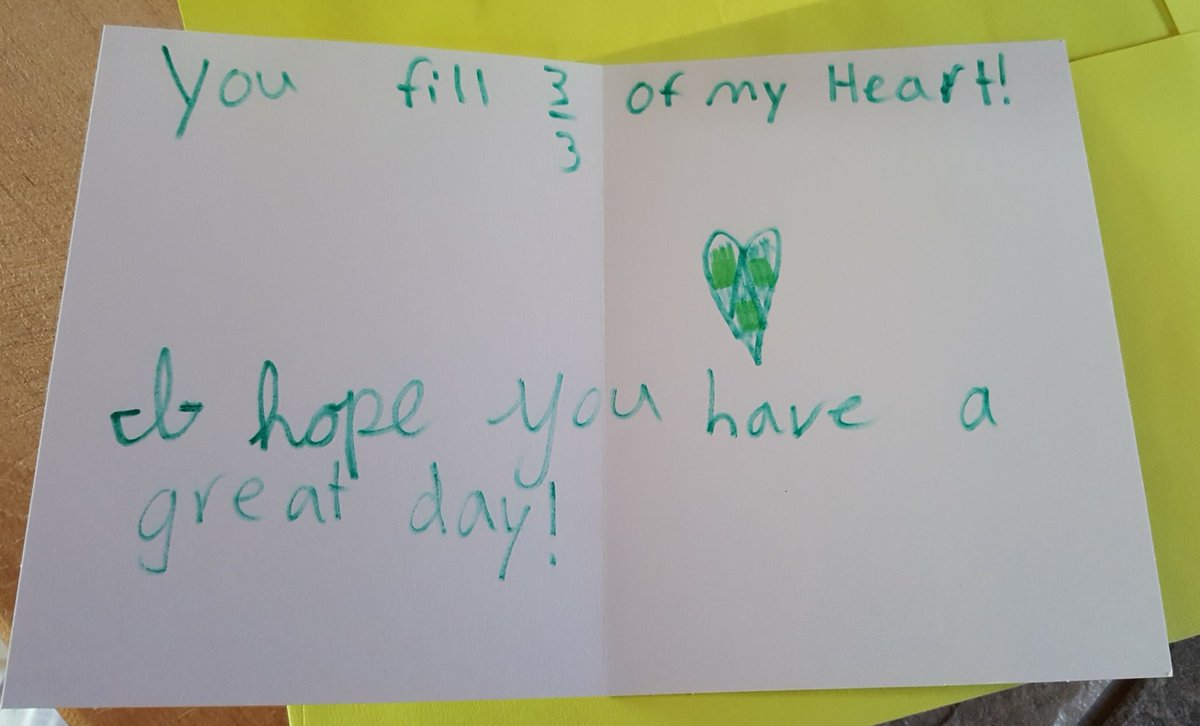 You fill 3/3 of my Heart!
I hope you have a
great day!